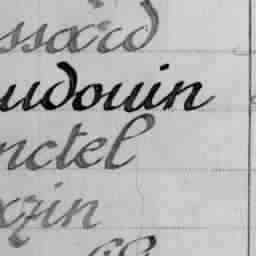 ssard
udouin
nctel
xzin